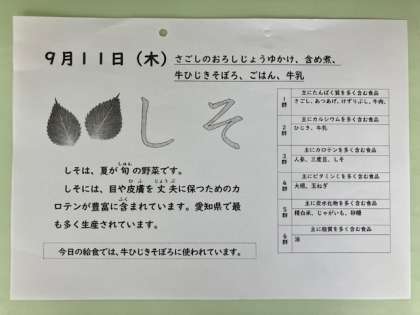 9月11日（木）
さごしのおろしじょうゆかけ、含め煮、
牛ひじきそぼろ、ごはん、牛乳
しそ
しそは、夏が旬の野菜です。
しゅん
しそには、目や皮膚を丈夫に保つためのカ
ひふ
じょうぶ
ロテンが豊富に含まれています。愛知県で最
ふく
も多く生産されています。
今日の給食では、牛ひじきそぼろに使われています。
1群
主にたんぱく質を多く含む食品
さごし、あつあげ、けずりぶし、牛肉、
2群
主にカルシウムを多く含む食品
ひじき、牛乳
3群
主にカロテンを多く含む食品
人参、三度豆、しそ
4群
主にビタミンCを多く含む食品
大根、玉ねぎ
5群
主に炭水化物を多く含む食品
精白米、じゃがいも、砂糖
6群
主に脂質を多く含む食品
油